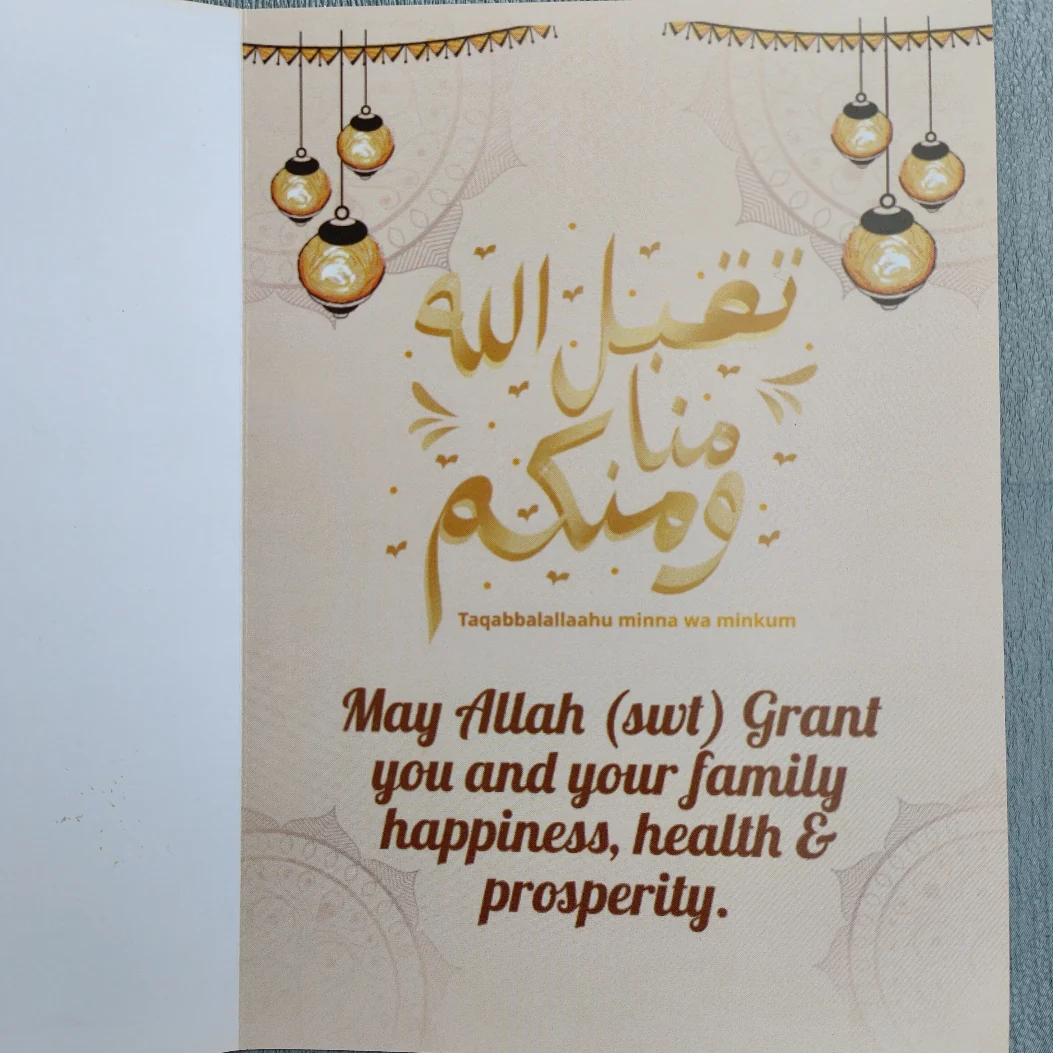 تقبل الله
منا
ومنكم
Taqabbalallaahu minna wa minkum
May Allah (swt) Grant
you and your family
happiness, health &
prosperity.